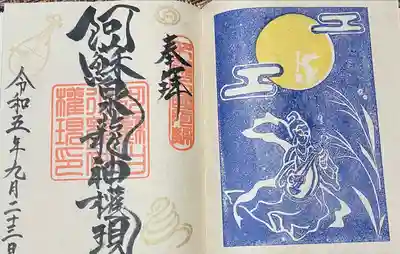 奉拝
阿蘇白水龍神權現
令和五年九月二十三日